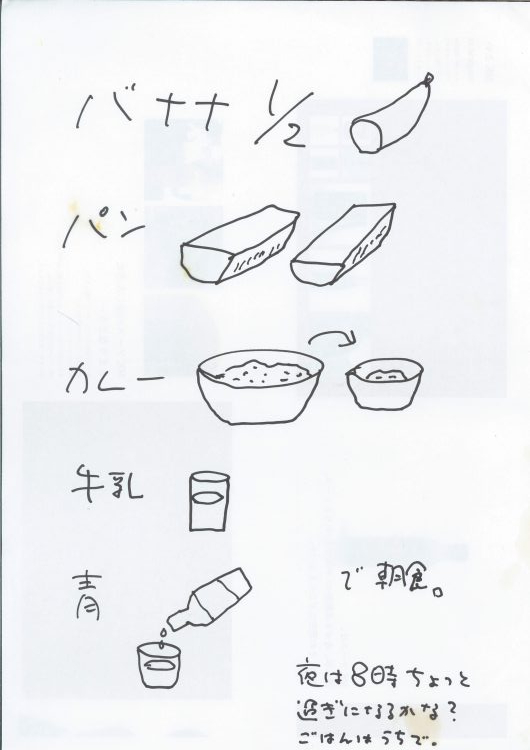 バナナ 1/2
パン
カレー
牛乳
青
で朝食。
夜は8時ちょっと
過ぎになるかな?
ごはんはうちで。